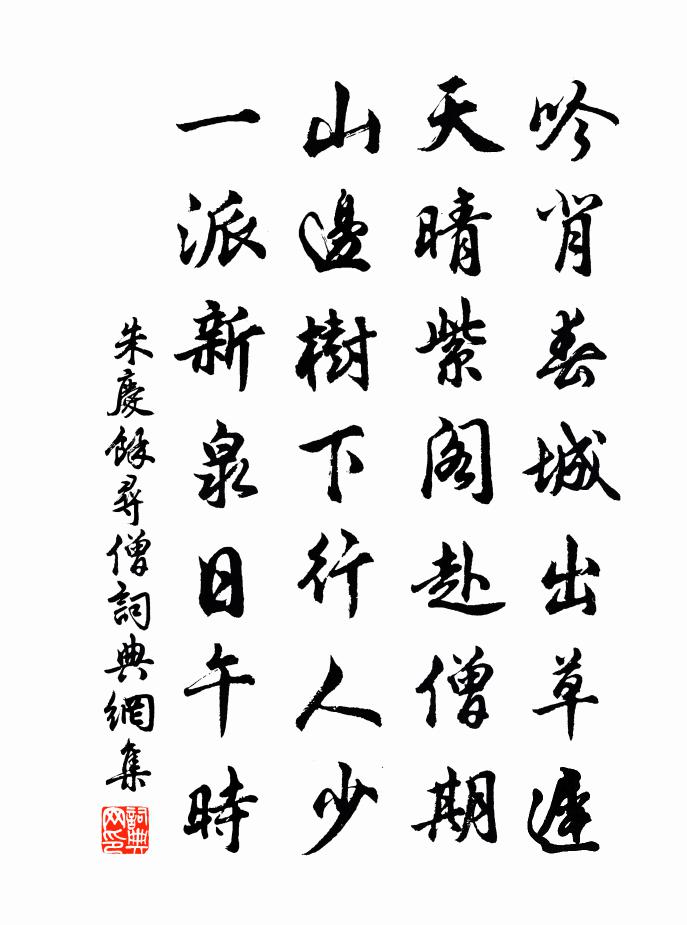 吟背春城出草遲
天晴紫閣赴僧期
山邊樹下行人少
一派新泉日午時
朱慶餘尋僧詞典網集
詞典网印